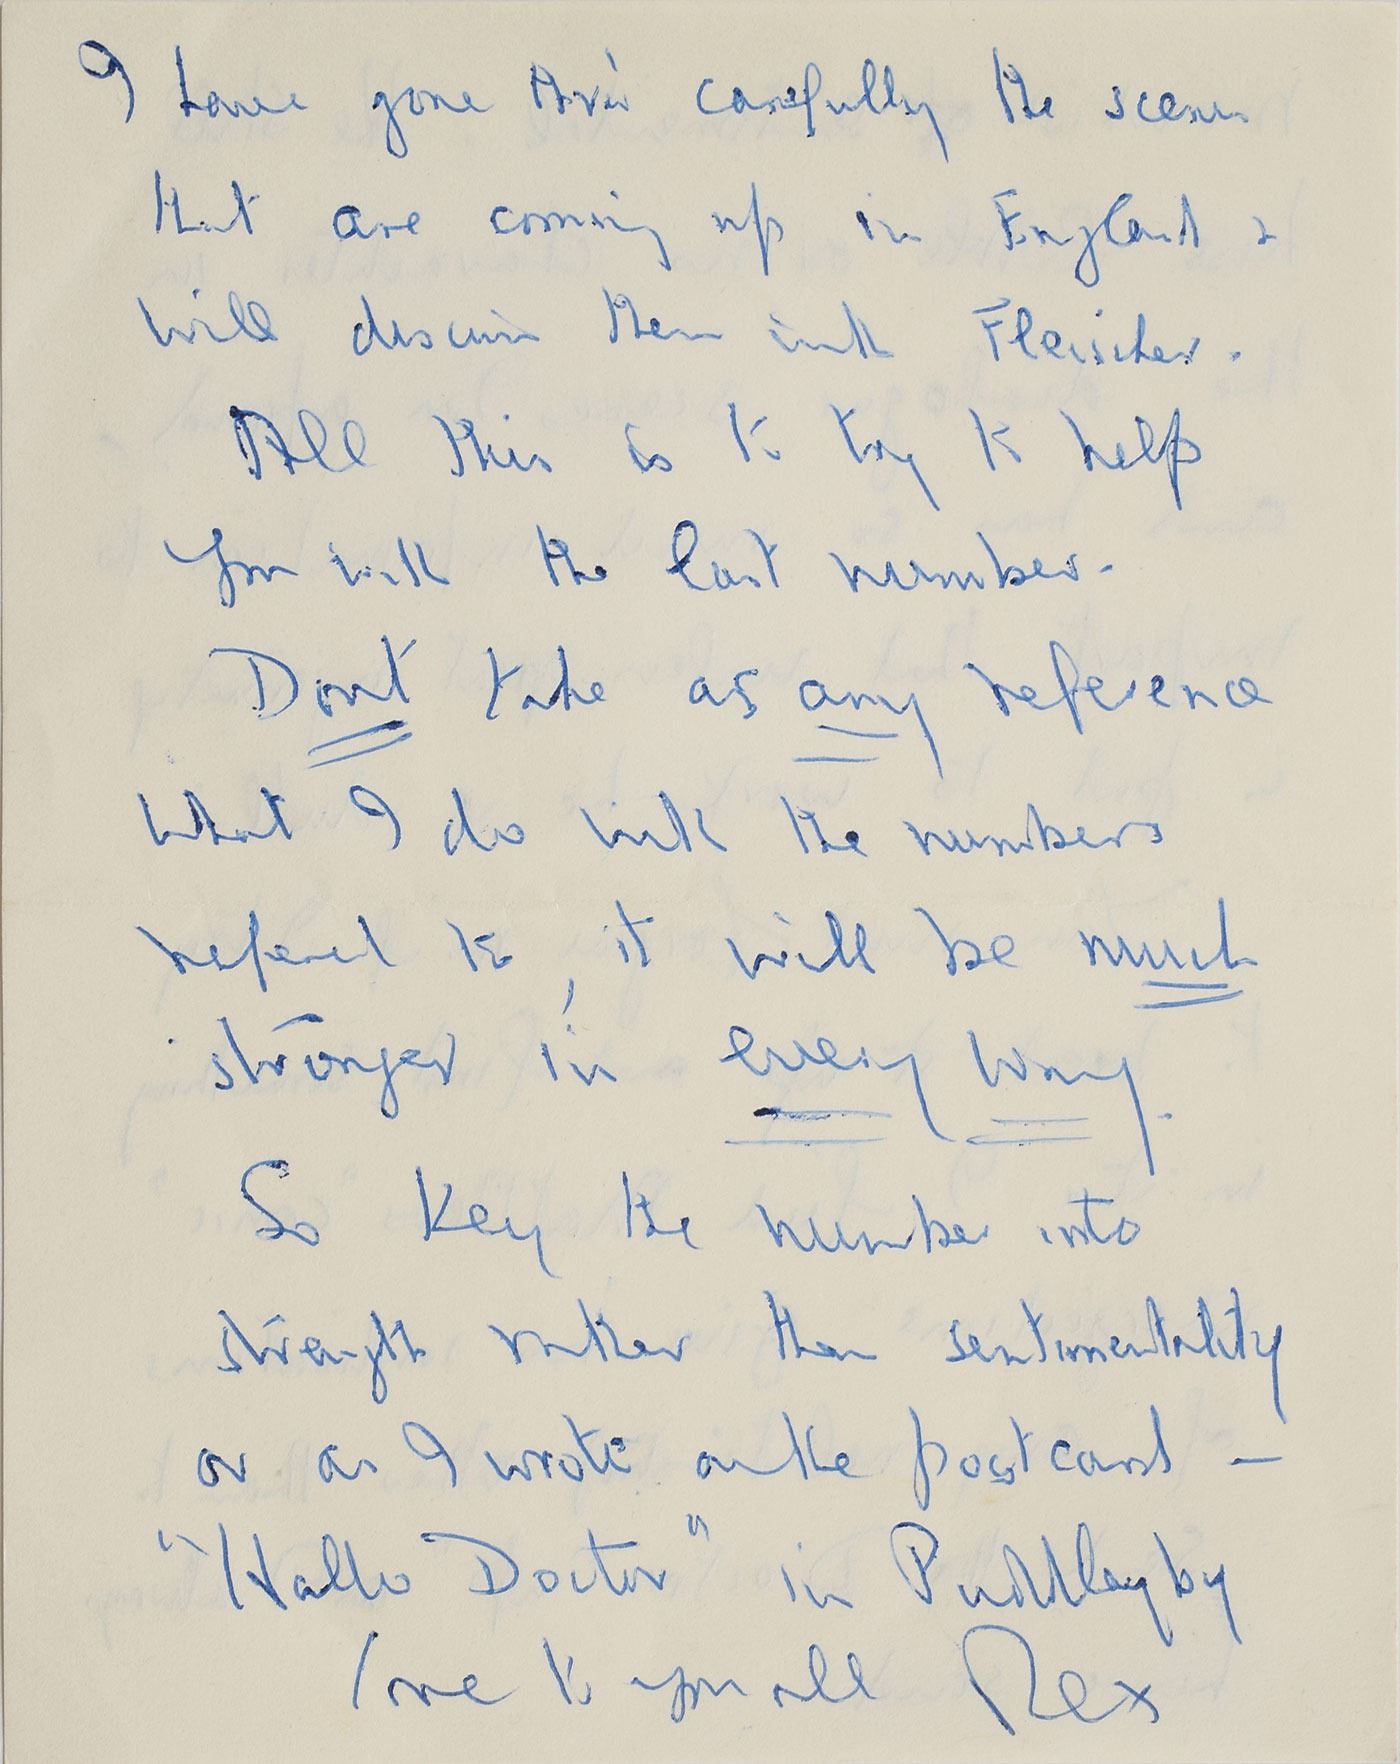 I have gone thro' carefully the scenes
that are coming up in England &
will discuss them with Fleischer.
All this is to try to help
you with the last number.
Dont take as any reference
what I do with the numbers
refered to, it will be much
stronger in every way.
So key the number into
strength rather than sentimentality
or as I wrote on the postcard —
"Hallo Doctor" in Puddleby
love to you all Rex